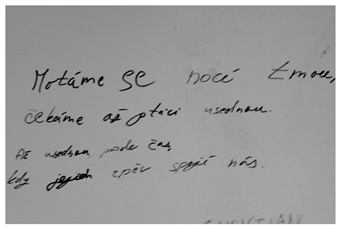 Motáme se nocí tmou,
čekáme až ptáci usednou.
Až usednou, bude čas,
kdy jejich zpěv spojí nás.